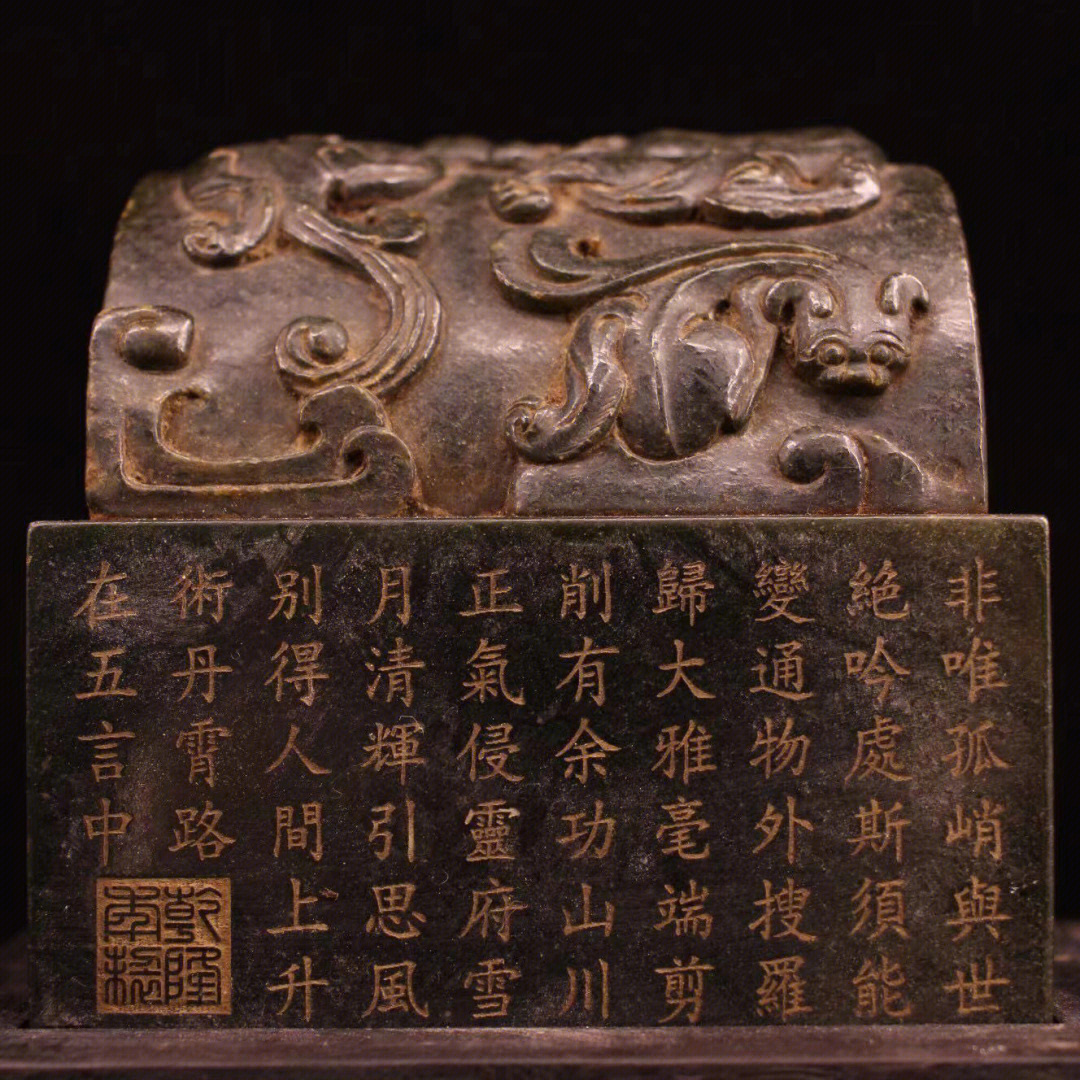 非唯孤峭與世
絶吟處斯須能
變通物外搜羅
歸大雅毫端剪
削有余功山川
正氣侵靈府雪
月清輝引思風
別得人間上升
術丹霄路
在五言中
乾隆